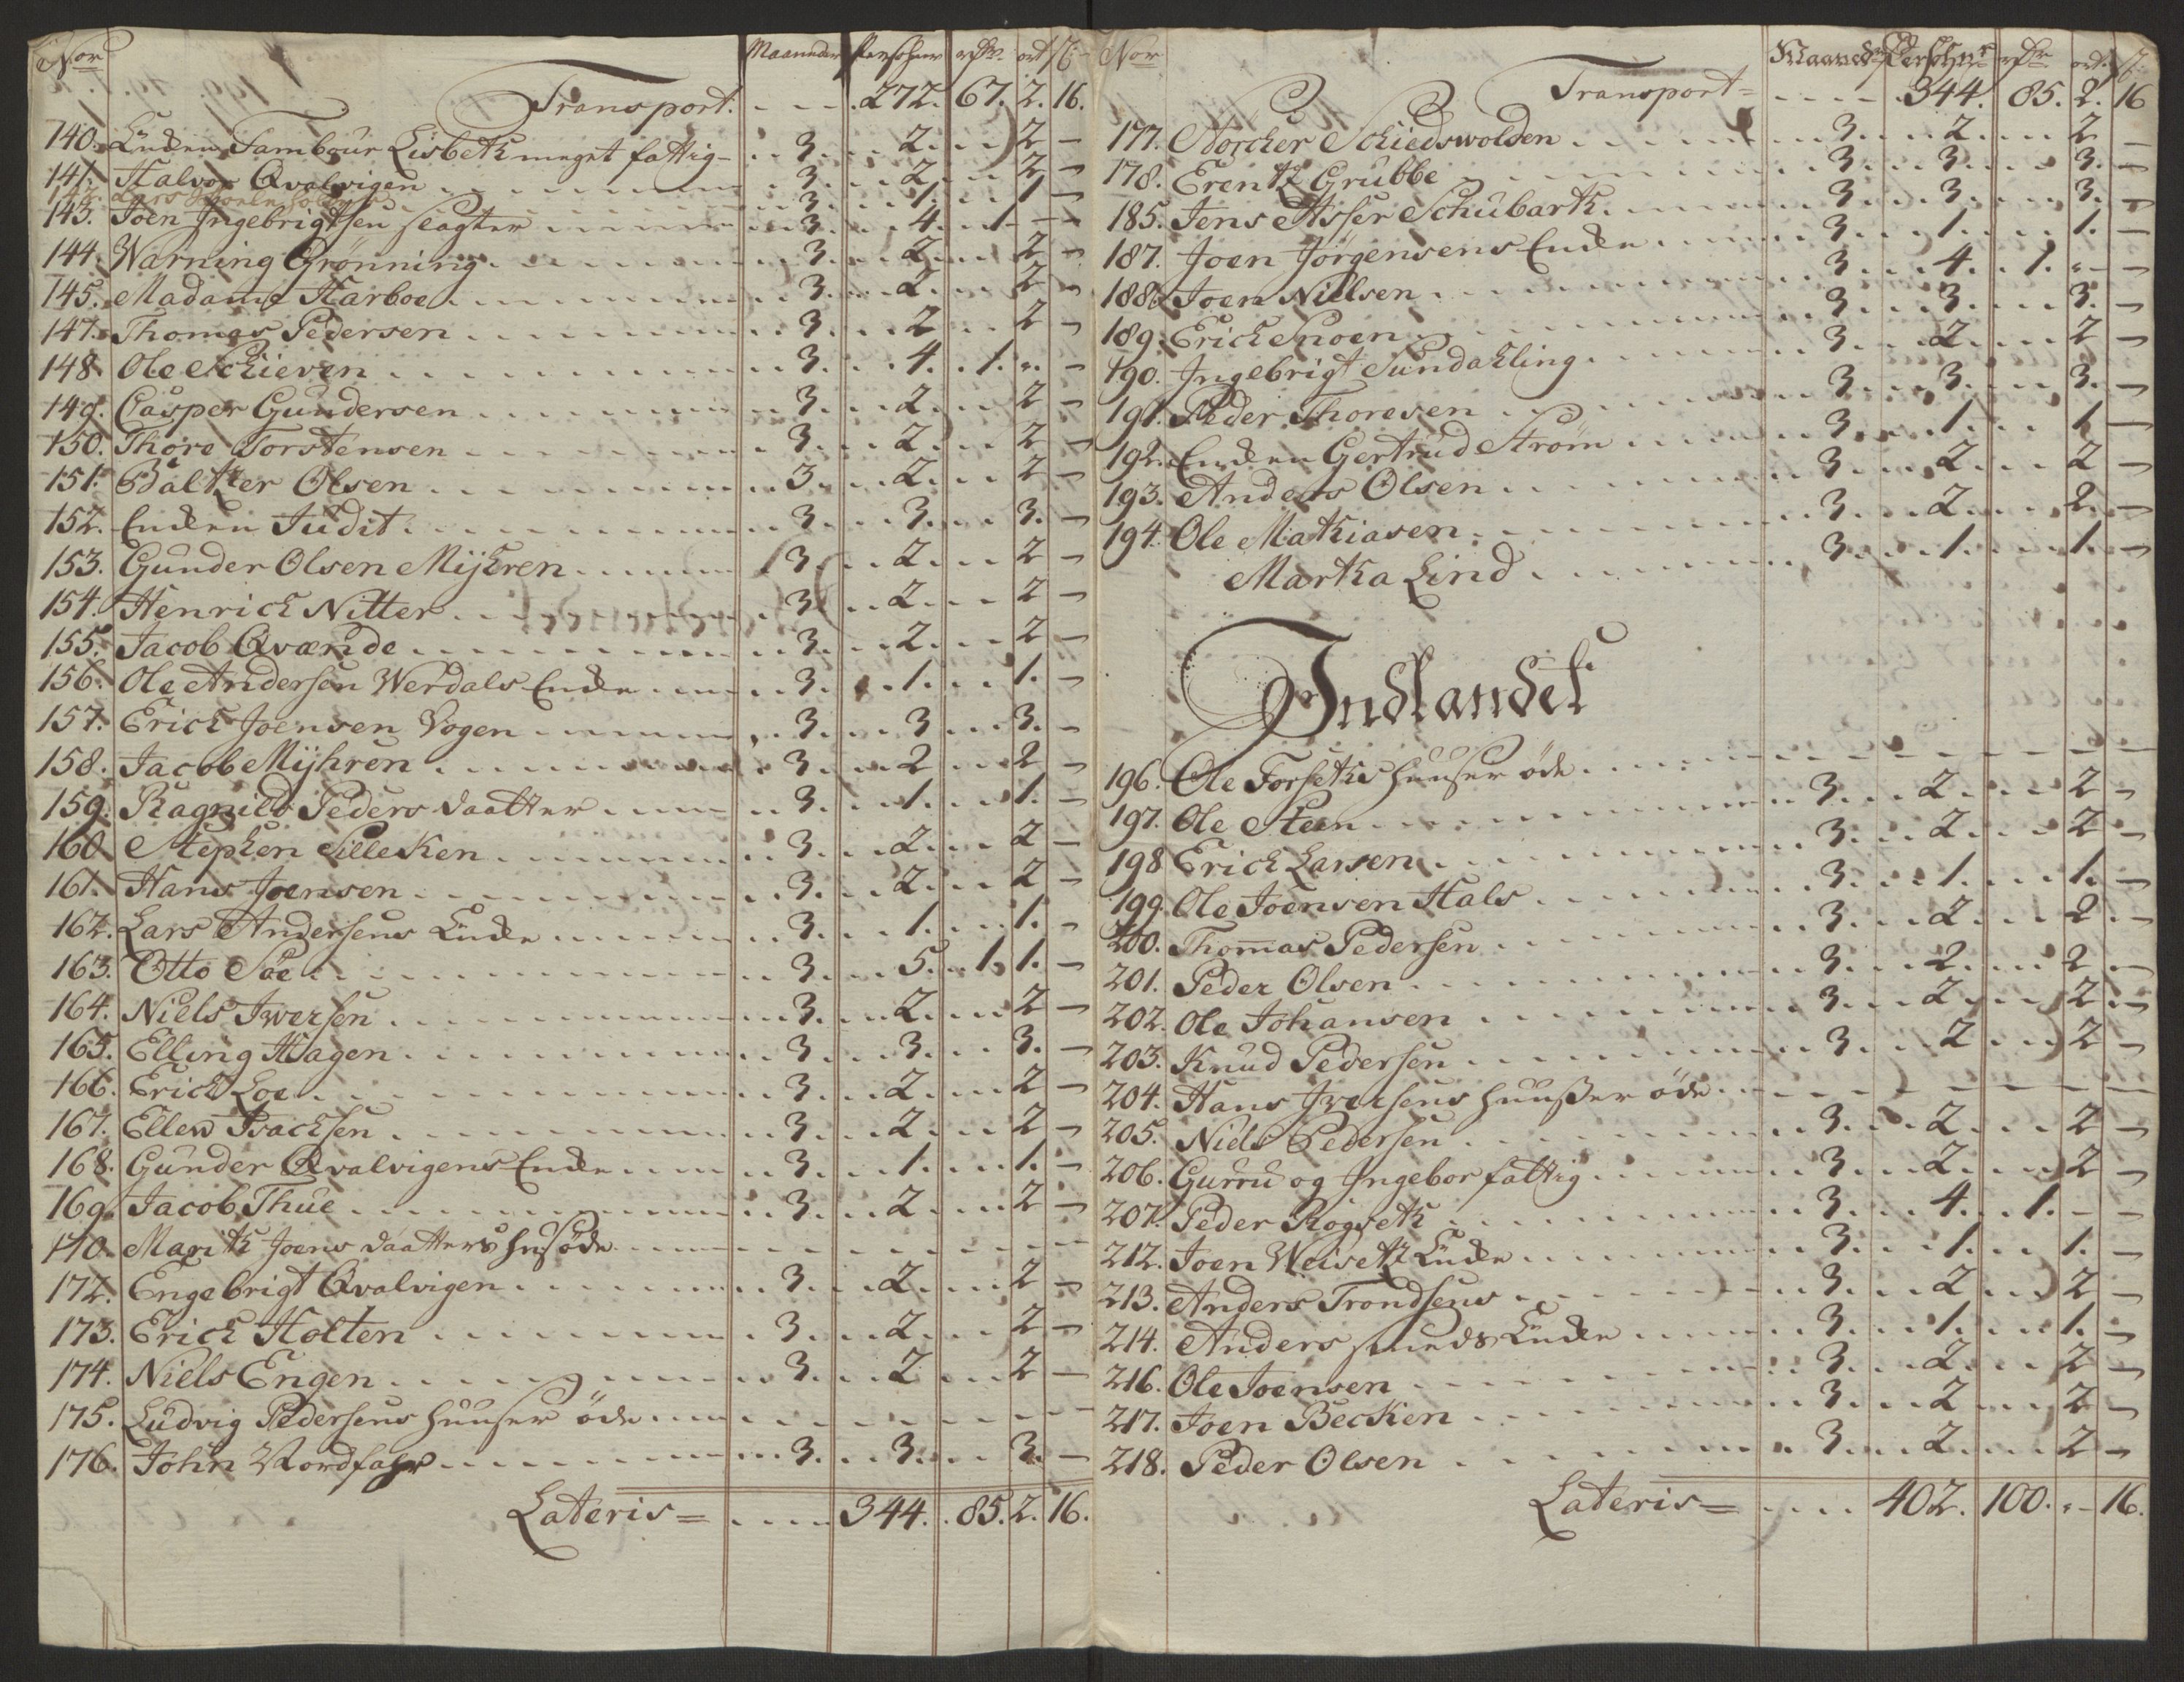 Nor Maaneder Persohner rdr ort ß
Transport: 272. 67. 2. 16.
140. Enken Tambour Lisbeth meget fattig 3. 2. 2 -
141. Halvor Qvalvigen 3. 2. 2 -
142. Lars 3. 1. 1 -
143. Joen Jngebrigtsen slagter 3. 4. 1 - -
144. Warning Grønning 3. 2. 2 -
145. Madame Harboe 3. 2. 2 -
147. Thomas Pedersen 3. 2 2 -
148. Ole Schieven 3. 4. 1. " -
149. Casper Gundersen 3. 2. 2 -
150. Thore Torstensen 3. 2. 2 -
151. Balther Olsen 3. 2. 2 -
152. Enken Judit 3. 3. 3. -
153. Gunder Olsen Mijhren 3. 2. 2 -
154. Henrich Nitter 3. 2. 2 -
155. Jacob Qværnde 3. 2. 2 -
156. Ole Andersen Werdals Enke 3. 1. 1. -
157. Erich Joensen Vogen 3. 3 3. -
158. Jacob Mijhren 3. 2 2 -
159. Ragnild Peders daatter 3. 1. 1. -
160. Stephen Silleken 3. 2. 2 -
161. Hans Joensen 3. 2. 2 -
162. Lars Andersens Enke 3. 1. 1. -
163. Otto Soe 3. 5. 1. 1. -
164. Niels Iversen 3. 2. 2 -
165. Elling Hagen 3. 3. 3. -
166. Erich Loe 3. 2. 2 -
167. Ellew Isachsen 3. 2. 2 -
168. Gunder Qvalvigens Enke 3. 1. 1. -
169. Jacob Thue 3. 2 2 -
170. Marith Joens daatters huus øde
172. Engebrigt Qvalvigen 3. 2. 2 -
173. Erich Holten 3. 2. 2 -
174. Niels Engen 3. 2 2 -
175. Ludvig Pedersens huuser øde
176. John Nordfahr 3. 3. 3. -
Lateris = 344. 85. 2. 16.
Nor Maaneder Persohnr rdr ort ß
Transport = 344. 85. 2. 16
177. Norcher Schiedswolden 3. 2. 2 -
178. Erentz Grubbe 3. 3. 3. -
185. Jens Asser Schubarth 3. 3. 3. -
187. Joen Jørgensens Enke 3. 1. 1. -
188. Joen Nielsen 3. 4. 1. " -
189. Erich Snoen 3. 3. 3. -
190. Jngebrigt Sundahling 3. 2. 2 -
191. Peder Thoresen 3. 3. 3. -
192. Enken Gertrud Strøm 3. 1. 1 -
193. Anders Olsen 3. 2 2 -
194. Ole Mathiasen 3. 2. 2. -
Martha Lind 3. 1. 1. -
Indlandet
196. Ole Forseths huuser øde
197. Ole Steen 3. 2. 2 -
198 Erich Larsen 3. 2. 2. -
199. Ole Joensen Hals 3. 1. 1. -
200. Thomas Pedersen 3. 2. 2. -
201. Peder Olsen 3. 2. 2 -
202. Ole Johansen 3. 2. 2. -
203. Knud Pedersen 3. 2 2 -
204. Hans Iversens huußer øde
205. Niels Pedersen 3. 2. 2 -
206. Gurru og Jngebor fattig 3. 2. 2 -
207. Peder Rogseth 3. 4. 1. - -
212. Joen Weiseth Enke 3. 1. 1. -
213. Anders Trondsens 3. 2 2 -
214. Anders smeds Enke 3. 1. 1. -
216. Ole Joensen 3. 2. 2 -
217. Joen Becken 3. 2 2 -
218. Peder Olsen 3. 2. 2 -
Lateris = 402. 100. " - 16.